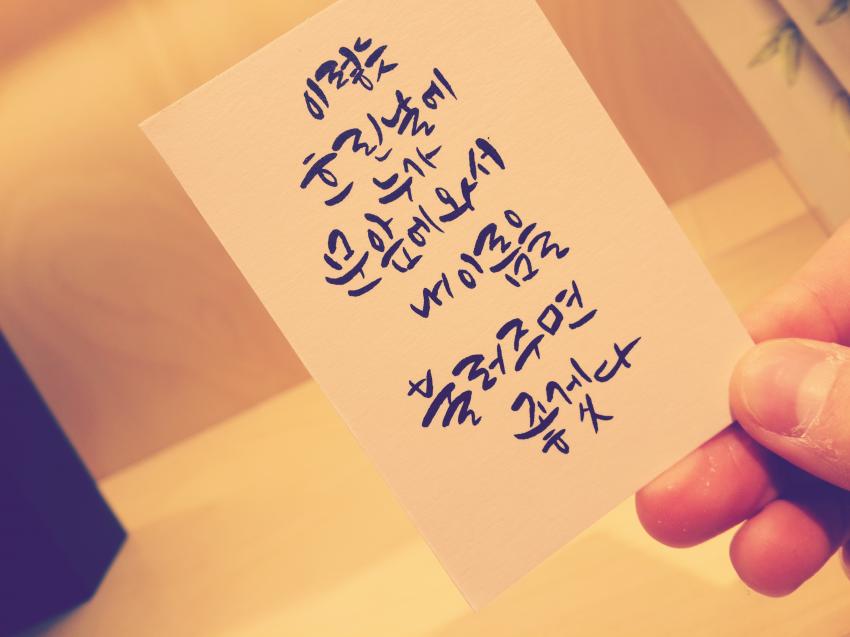 이렇듯
흐린날에
누가
문앞에와서
내이름을
불러주면
좋겠다